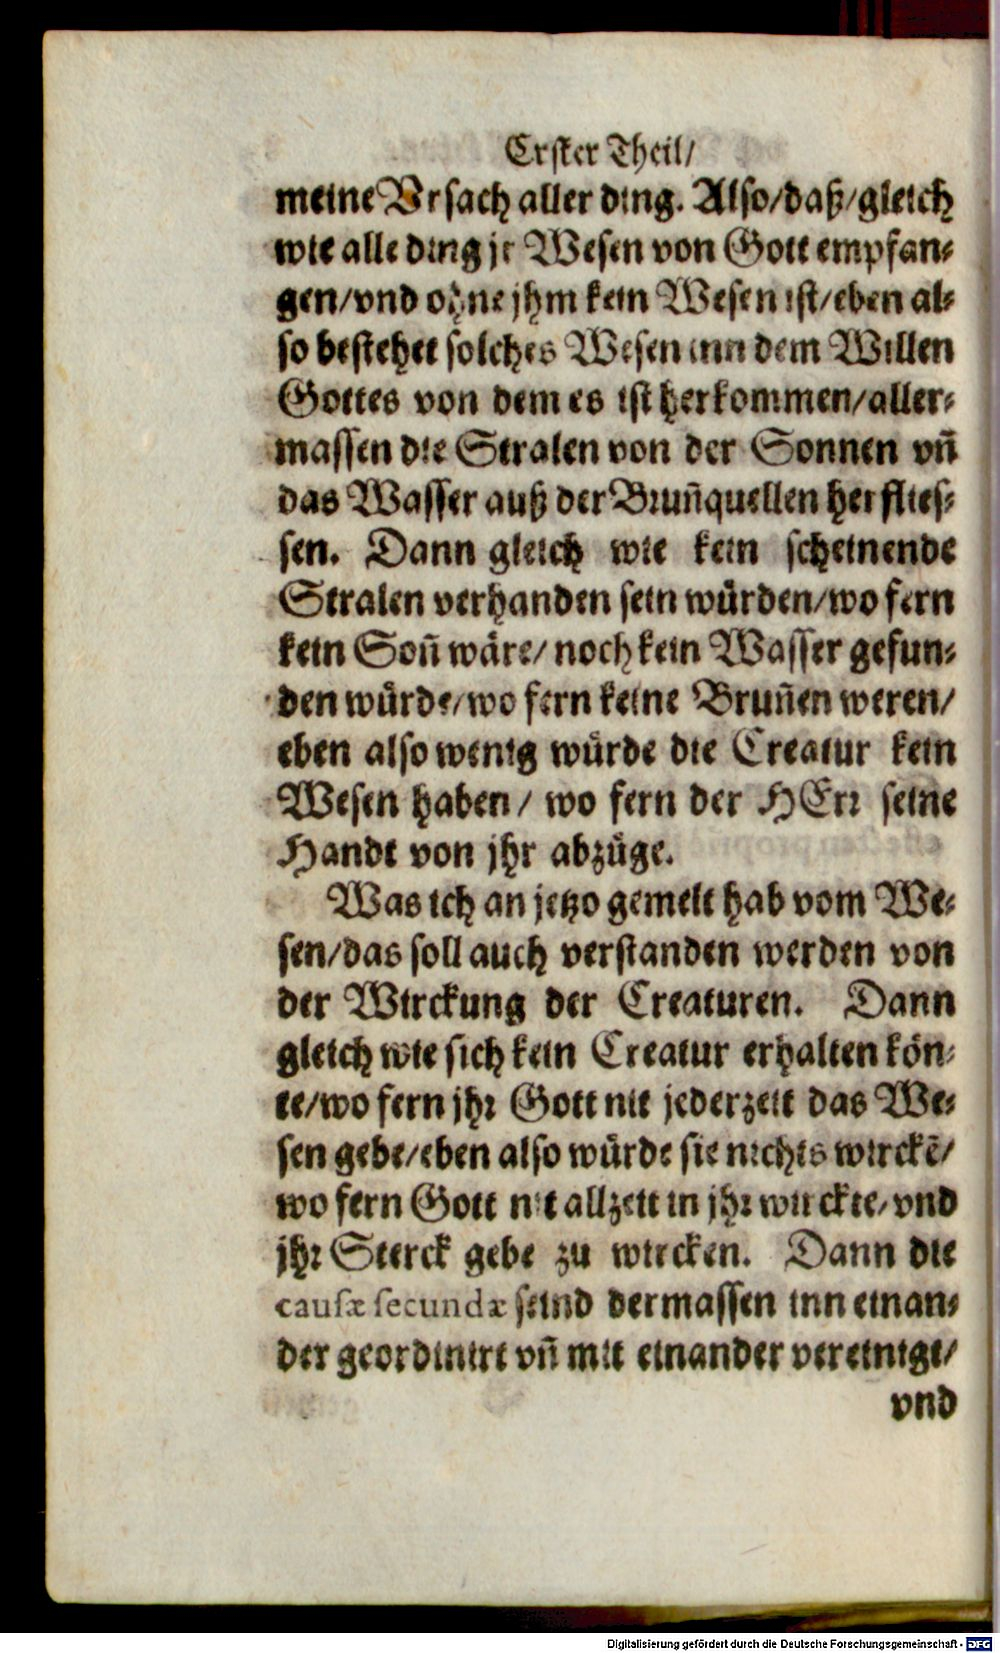 Erster Theil/
meine Vrsach aller ding. Also/daß/gleich
wie alle ding jr Wesen von Gott empfan-
gen/vnd ohne jhm kein Wesen ist/eben al-
so bestehet solches Wesen inn dem Willen
Gottes von dem es ist herkommen/aller-
massen die Stralen von der Sonnen vñ
das Wasser auß der Bruñquellen herflies-
sen. Dann gleich wie kein scheinende
Stralen verhanden sein würden/wo fern
kein Soñ wäre/noch kein Wasser gefun-
den würde/wo fern keine Bruñen weren/
eben also wenig würde die Creatur kein
Wesen haben/ wo fern der HErr seine
Handt von jhr abzüge.
Was ich an jetzo gemelt hab vom We-
sen/das soll auch verstanden werden von
der Wirckung der Creaturen. Dann
gleich wie sich kein Creatur erhalten kön-
te/wo fern jhr Gott nit jederzeit das We-
sen gebe/eben also würde sie nichts wirckẽ/
wo fern Gott nit allzeit in jhr wirckte/vnd
jhr Sterck gebe zu wircken. Dann die
causæ secundæ seind dermassen inn einan-
der geordinirt vñ mit einander vereinigt/
vnd
Digitalisierung gefördert durch die Deutsche Forschungsgemeinschaft - DFG